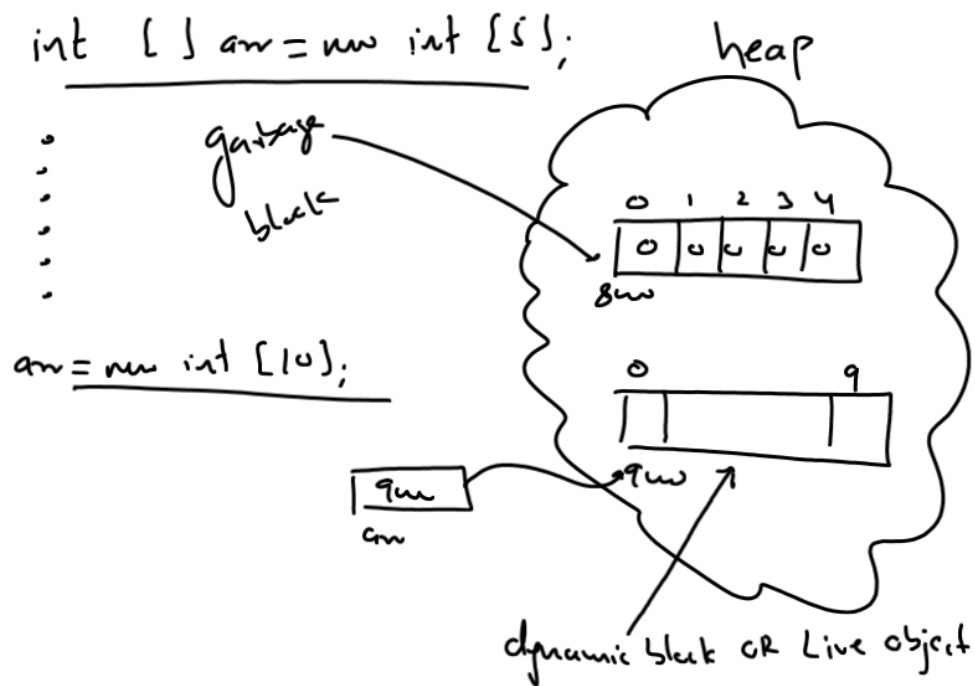 int [ ] arr = new int [5];
heap
garbage
block
0 1 2 3 4
0 0 0 0 0
8000
arr = new int [10];
0 9
9000
9000
arr
dynamic block OR Live object